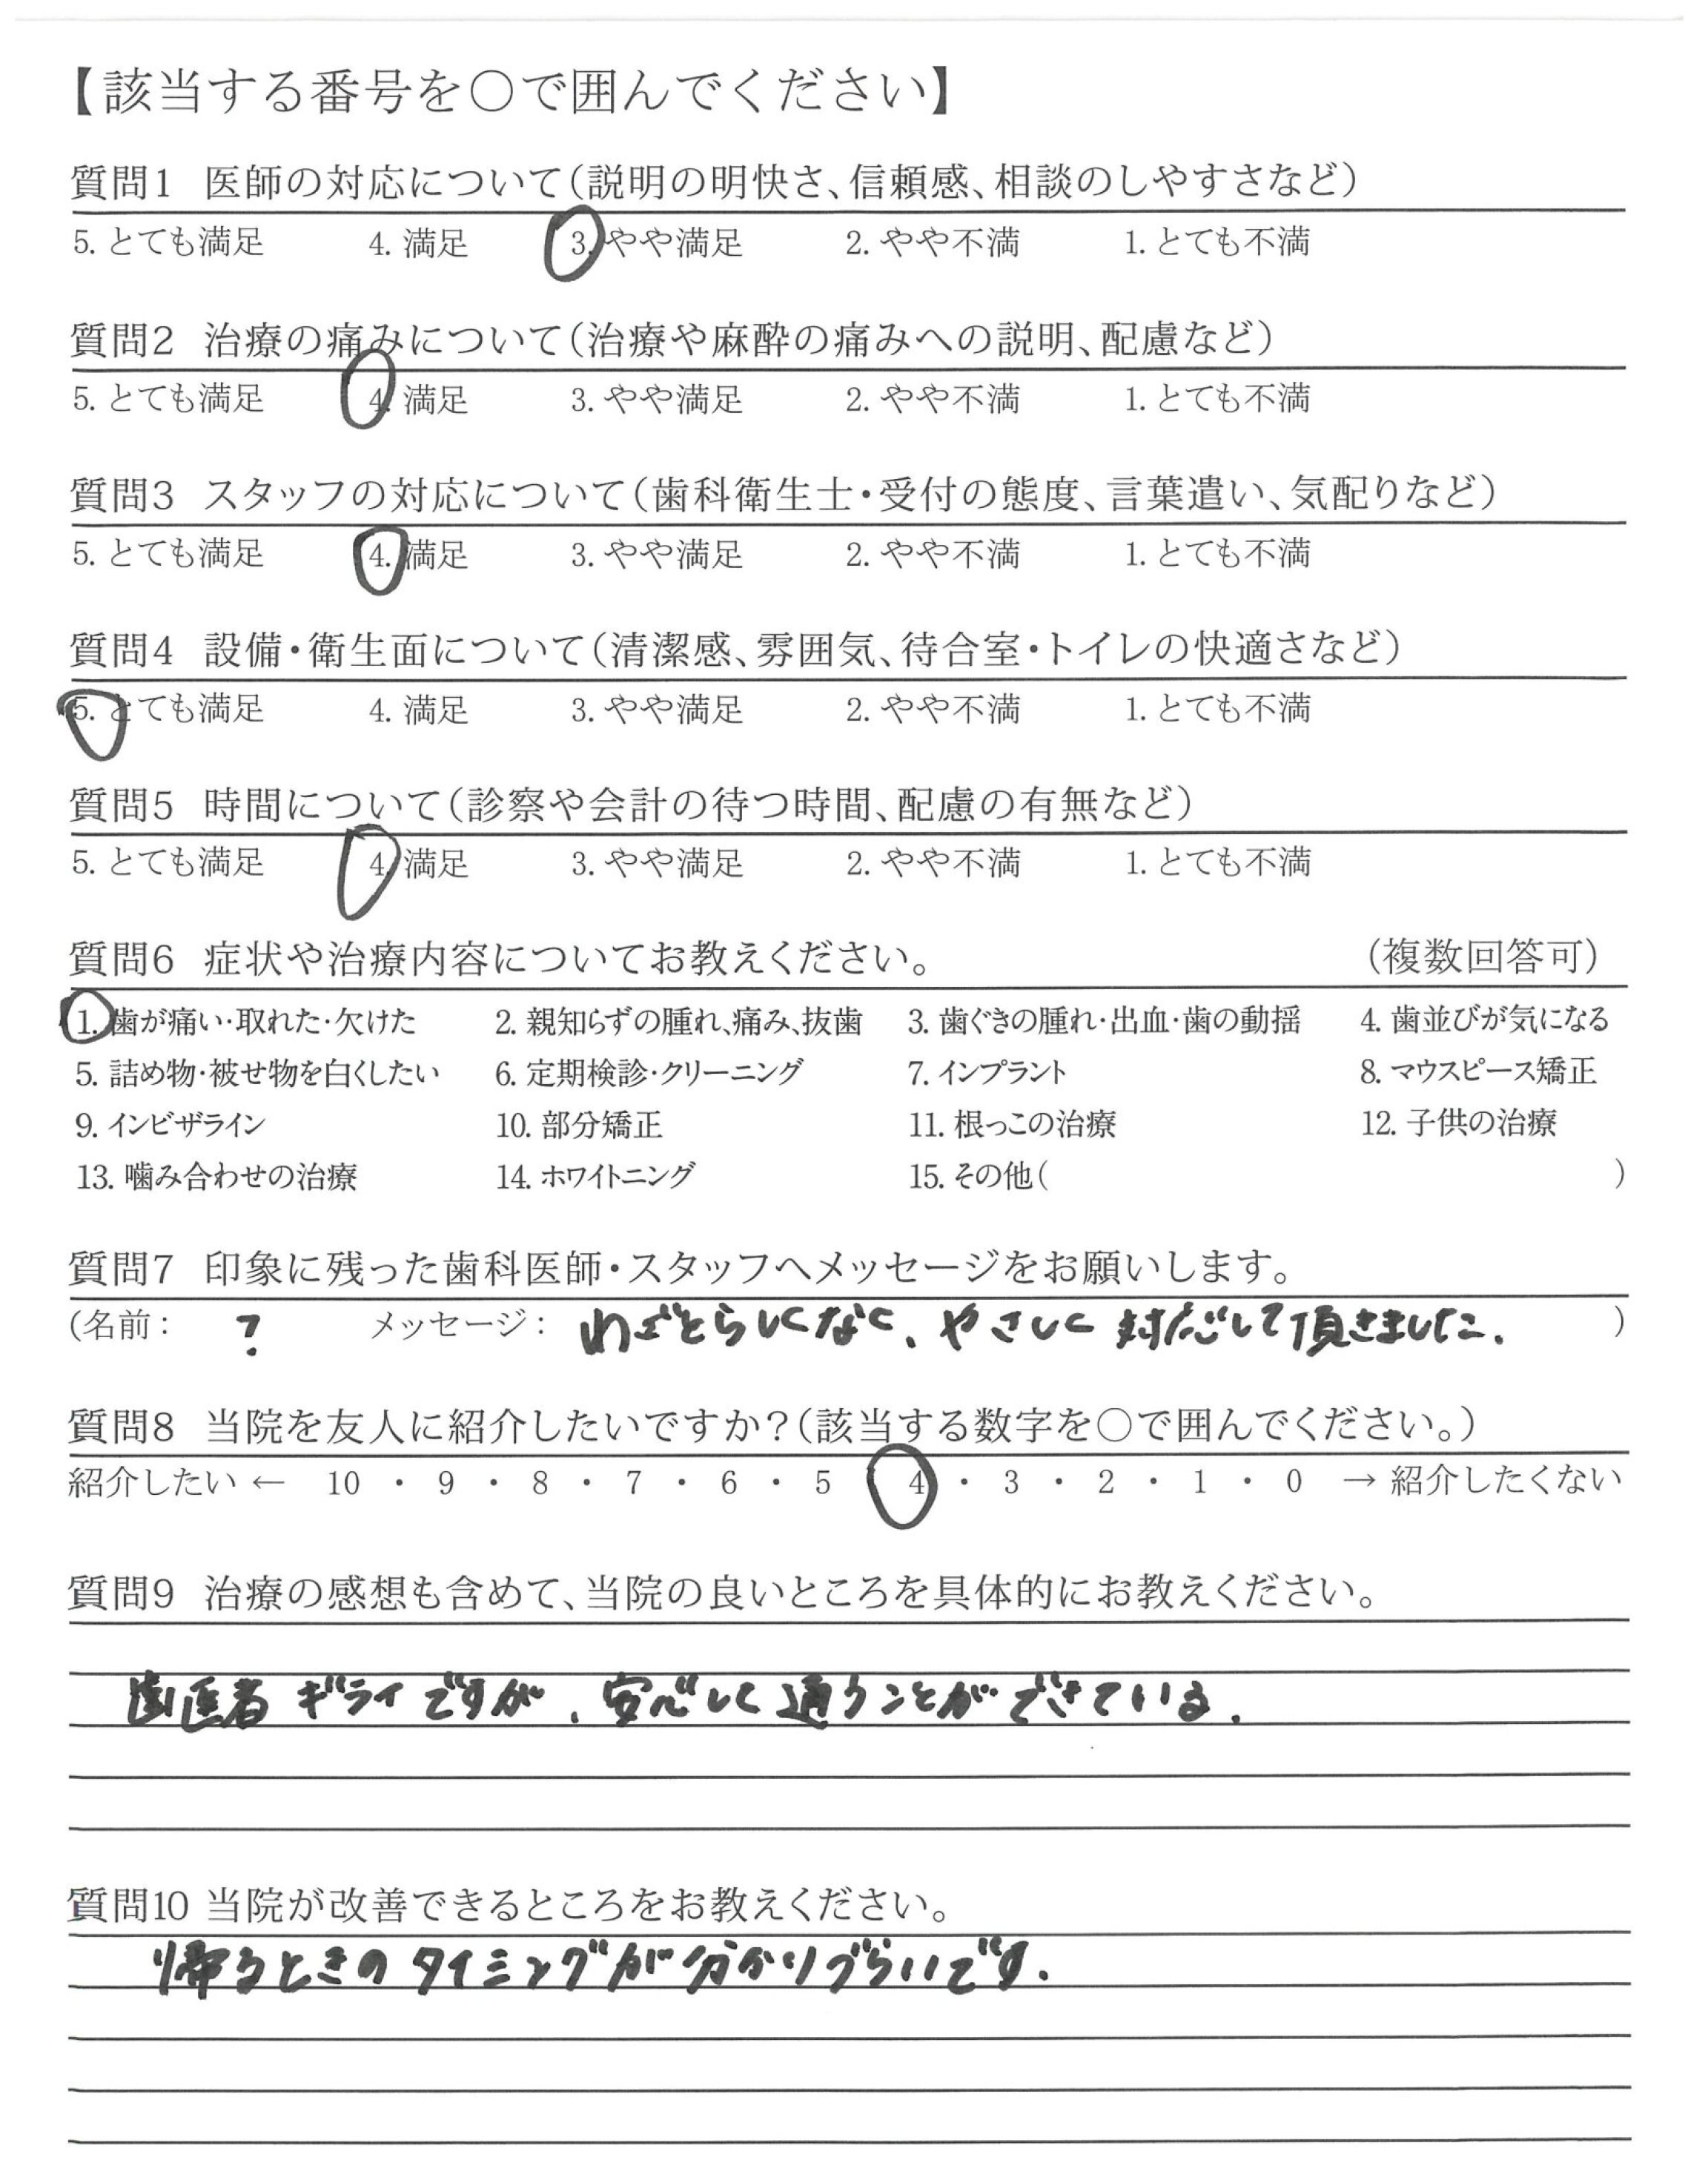 【該当する番号を○で囲んでください】
質問1 医師の対応について(説明の明快さ、信頼感、相談のしやすさなど)
5. とても満足 4. 満足 3. やや満足 2. やや不満 1. とても不満
質問2 治療の痛みについて(治療や麻酔の痛みへの説明、配慮など)
5. とても満足 4. 満足 3. やや満足 2. やや不満 1. とても不満
質問3 スタッフの対応について(歯科衛生士・受付の態度、言葉遣い、気配りなど)
5. とても満足 4. 満足 3. やや満足 2. やや不満 1. とても不満
質問4 設備・衛生面について(清潔感、雰囲気、待合室・トイレの快適さなど)
5. とても満足 4. 満足 3. やや満足 2. やや不満 1. とても不満
質問5 時間について(診察や会計の待つ時間、配慮の有無など)
5. とても満足 4. 満足 3. やや満足 2. やや不満 1. とても不満
質問6 症状や治療内容についてお教えください。 (複数回答可)
1. 歯が痛い・取れた・欠けた 2. 親知らずの腫れ、痛み、抜歯 3. 歯ぐきの腫れ・出血・歯の動揺 4. 歯並びが気になる
5. 詰め物・被せ物を白くしたい 6. 定期検診・クリーニング 7. インプラント 8. マウスピース矯正
9. インビザライン 10. 部分矯正 11. 根っこの治療 12. 子供の治療
13. 噛み合わせの治療 14. ホワイトニング 15. その他( )
質問7 印象に残った歯科医師・スタッフへメッセージをお願いします。
(名前: ? メッセージ: わざとらしくなく、やさしく対応して頂きました. )
質問8 当院を友人に紹介したいですか?(該当する数字を○で囲んでください。)
紹介したい ← 10 ・ 9 ・ 8 ・ 7 ・ 6 ・ 5 4 ・ 3 ・ 2 ・ 1 ・ 0 → 紹介したくない
質問9 治療の感想も含めて、当院の良いところを具体的にお教えください。
歯医者ギライですが、安心して通うことができている.
質問10 当院が改善できるところをお教えください。
帰るときのタイミングが分かりづらいです.